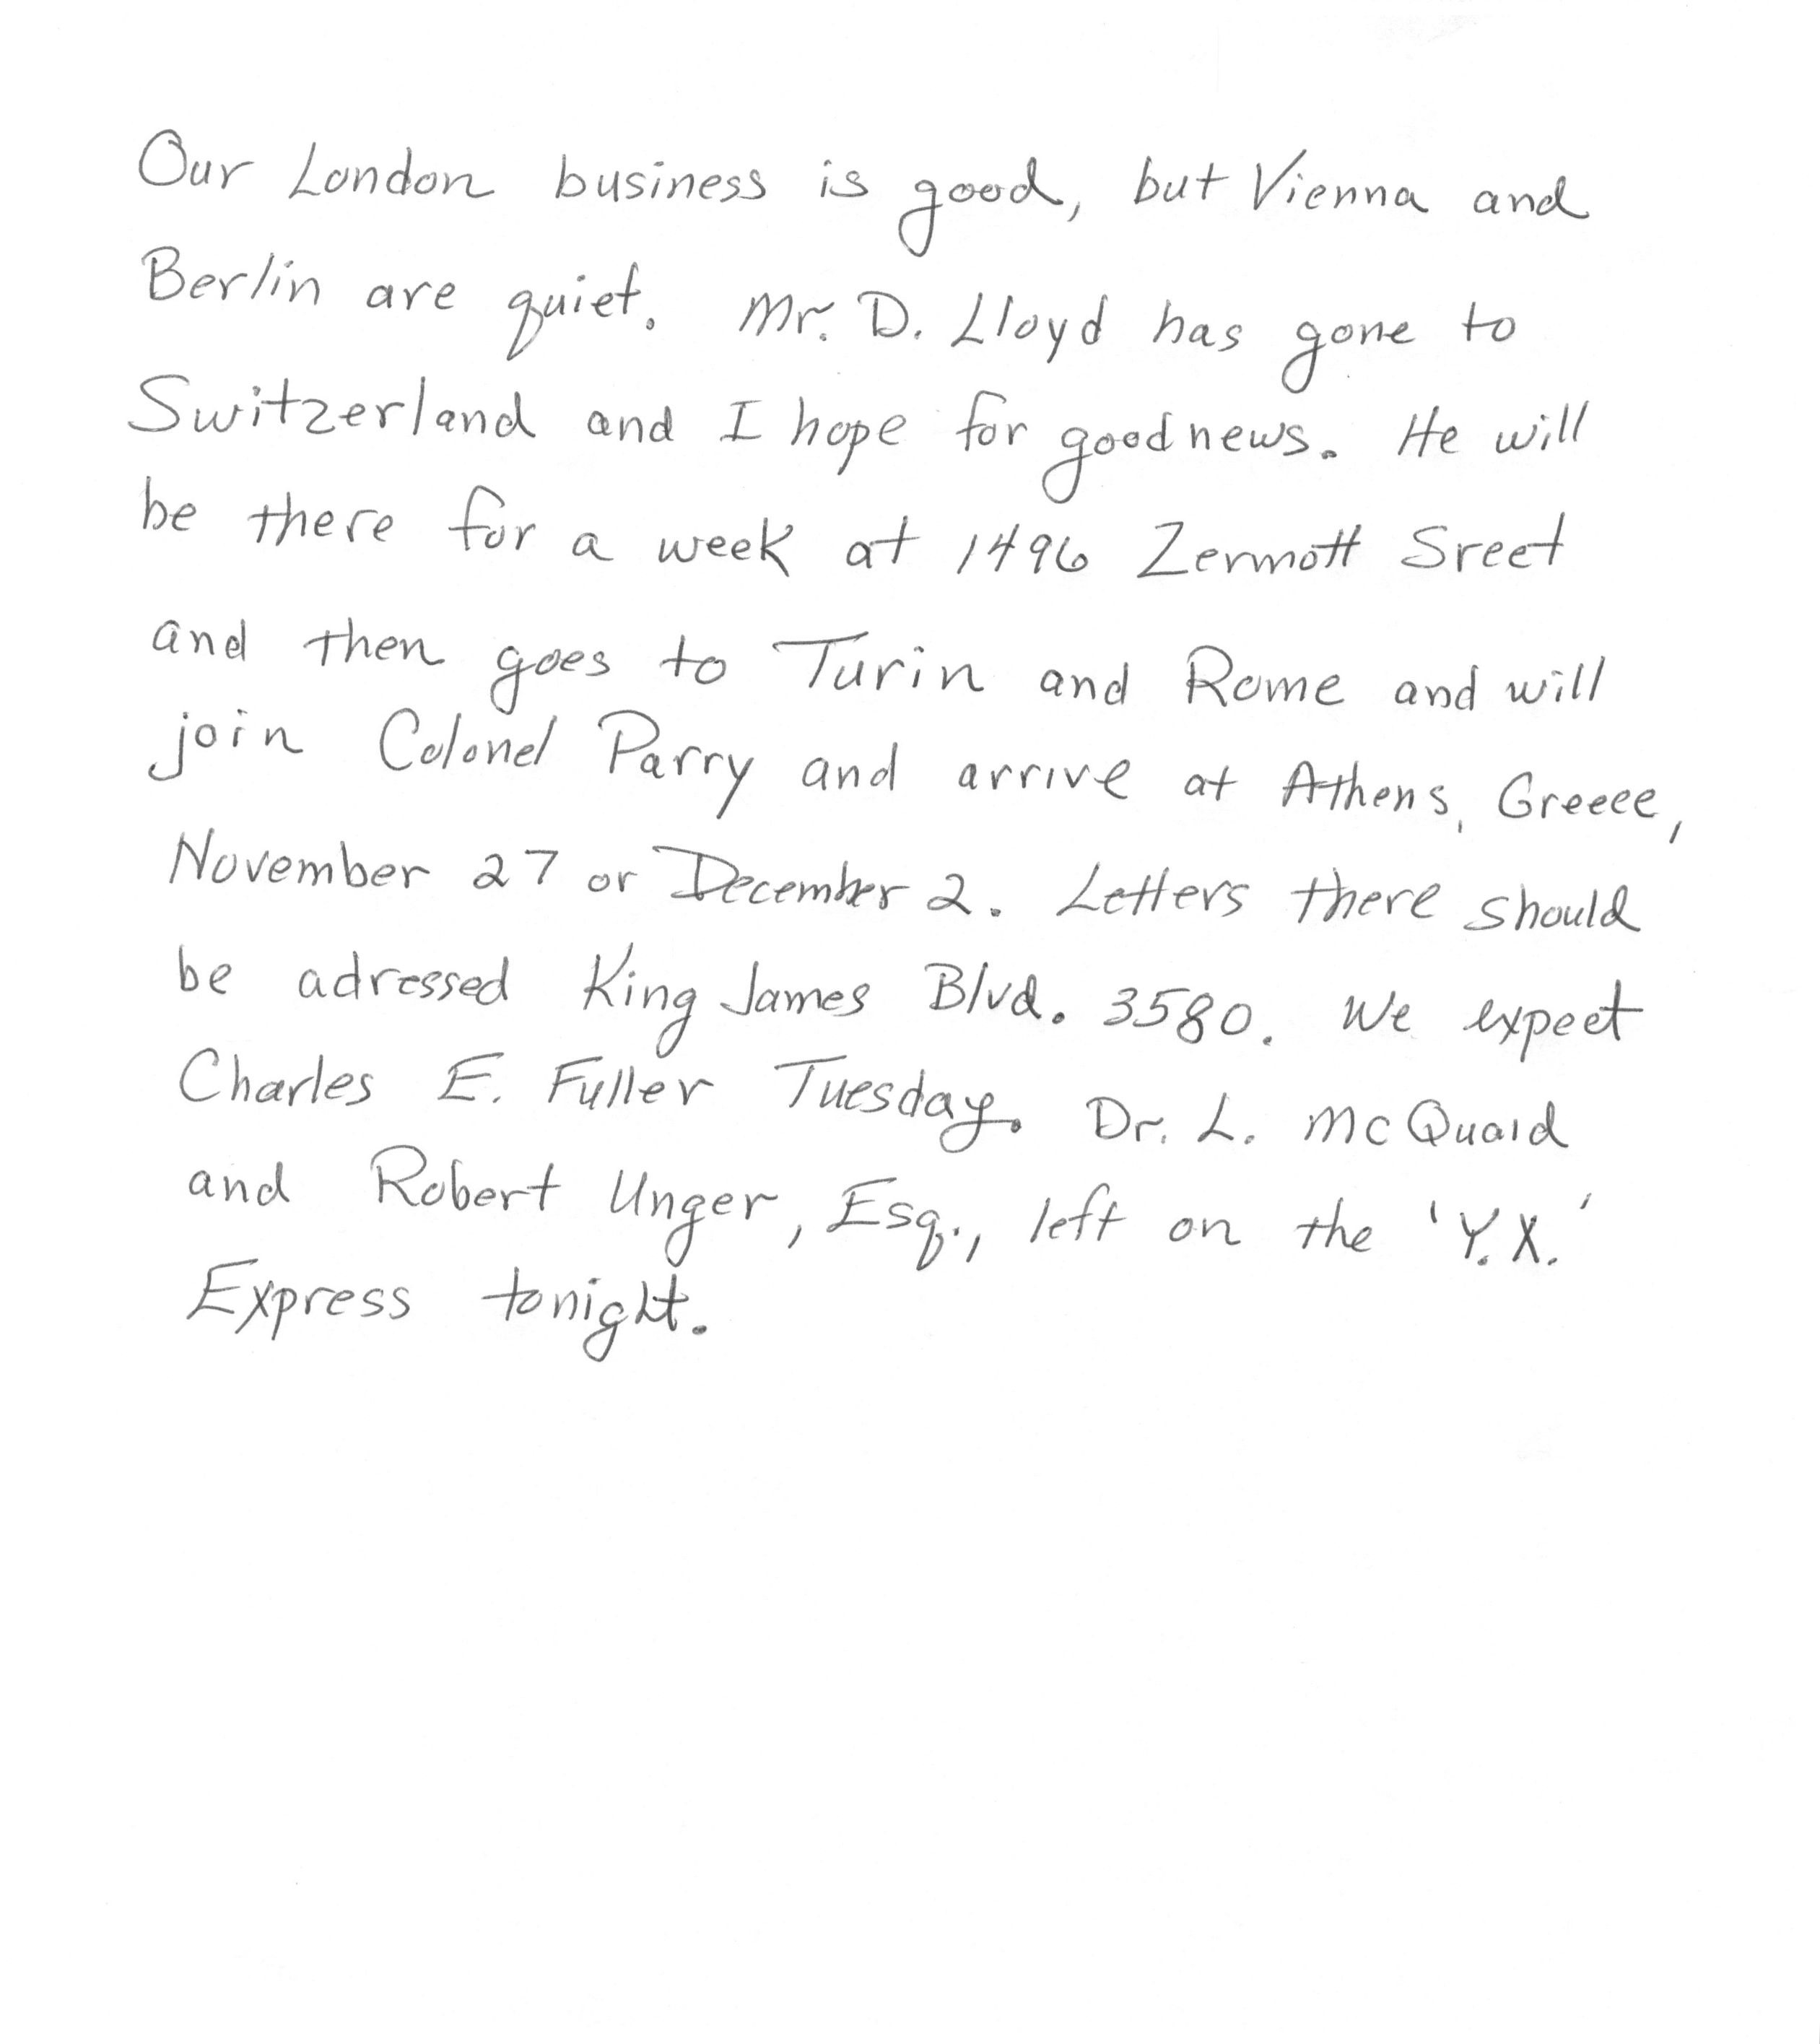 Our London business is good, but Vienna and
Berlin are quiet. Mr. D. Lloyd has gone to
Switzerland and I hope for good news. He will
be there for a week at 1496 Zermott Sreet
and then goes to Turin and Rome and will
join Colonel Parry and arrive at Athens, Greece,
November 27 or December 2. Letters there should
be adressed King James Blvd. 3580. We expect
Charles E. Fuller Tuesday. Dr. L. McQuaid
and Robert Unger, Esq., left on the 'Y.X.'
Express tonight.